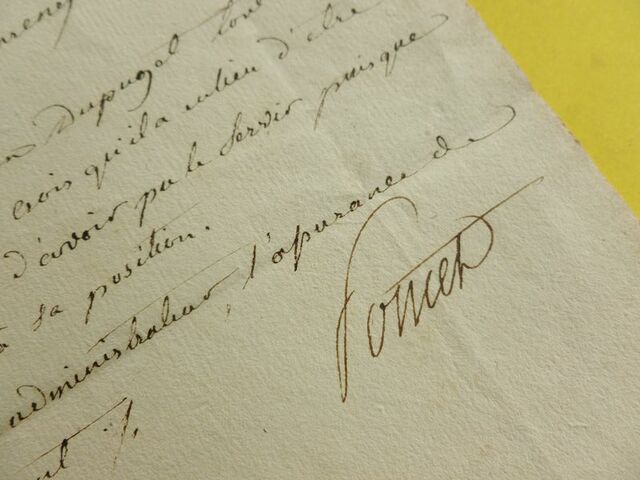 Dupuget tous
crois qu'il a eu lieu d'être
d'avoir pu le servir puisque
sa position.
administrateur, l'assurance de
Poncet